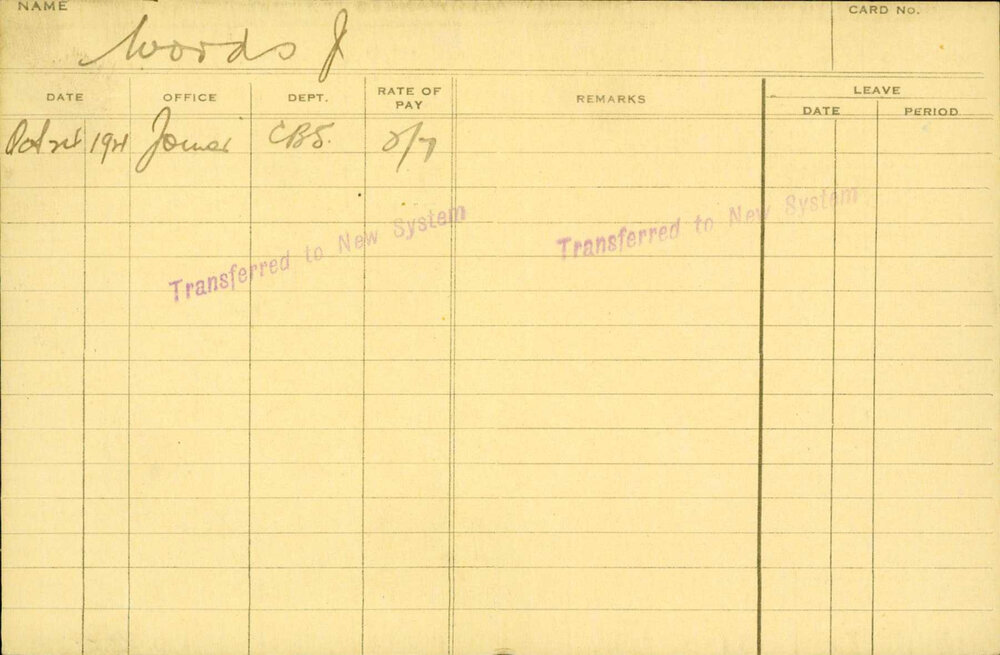 NAME
CARD No.
Woods J
DATE
OFFICE
DEPT.
RATE OF PAY
REMARKS
LEAVE
DATE
PERIOD
Oct 21st 1921 Joiner CBS. 2/7
Transferred to New System
Transferred to New System